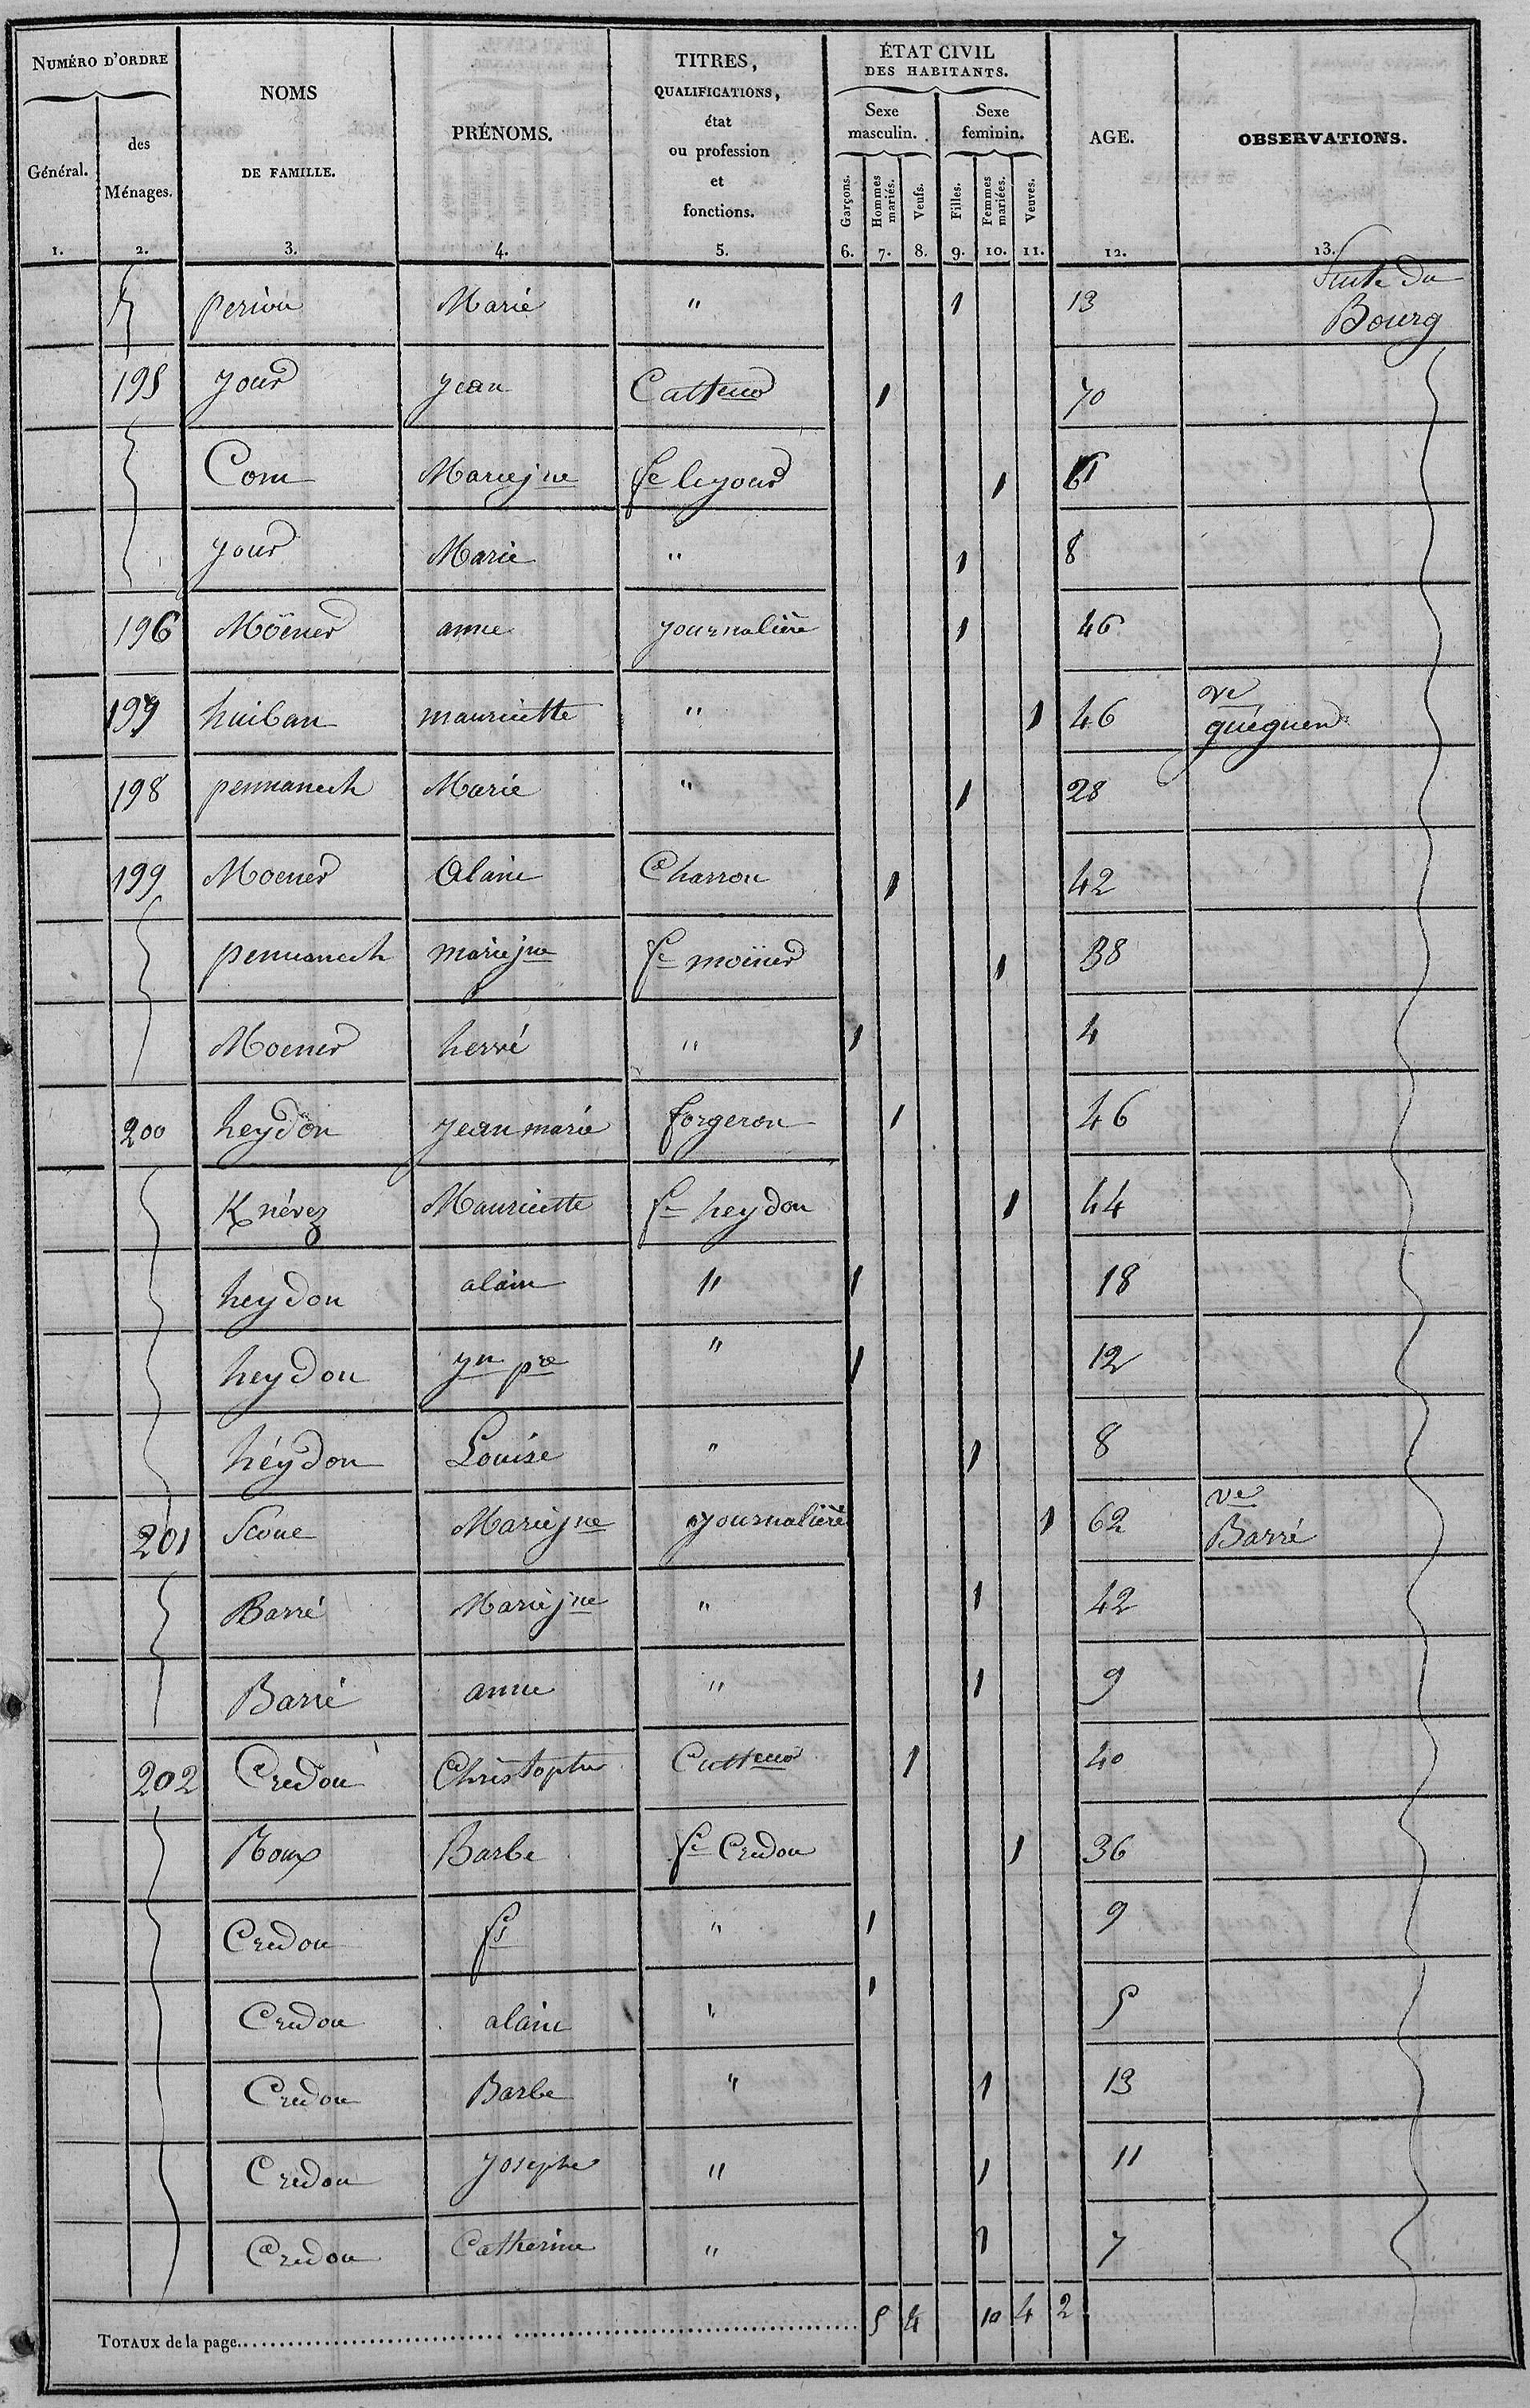 NUMÉRO D'ORDRE
Général.
des
Ménages.
NOMS
DE FAMILLE.
PRÉNOMS.
TITRES,
QUALIFICATIONS,
état
ou profession
et
fonctions.
ÉTAT CIVIL
DES HABITANTS.
Sexe
masculin.
Sexe
feminin.
Garçons.
Hommes
mariés.
Veufs.
Filles.
Femmes
mariées.
Veuves.
AGE.
OBSERVATIONS.
1. 2. 3. 4. 5. 6. 7. 8. 9. 10. 11. 12. 13.
Suite du
Bourg
periou Marie " 1 13
195 jour jean Catteur 1 70
Corre Mariejne fe lejour 1 61
jour Marie " 1 8
196 Moëner anne journalière 1 46
197 huiban mauricette " 1 46 ve
queguen
198 pennanech Marie " 1 28
199 Moener Alain Charron 1 42
pennanech mariejne fe moëner 1 38
Moener hervé " 1 4
200 heydon jean marie forgeron 1 46
K névez Mauricette fe heydon 1 44
heydon alain " 1 18
heydon jn pre " 1 12
héydon Louise " 1 8
201 Scoue Mariejne journalière 1 62 ve
Barré
Barré Mariejne " 1 42
Barré anne " 1 9
202 Credou Christophe Cutteur 1 40
Roux Barbe fe Credou 1 36
Credou fs " 1 9
Credou alain " 1 5
Credou Barbe " 1 13
Credou josephe " 1 11
Credou Catherine " 1 7
TOTAUX de la page 5 4 10 4 2